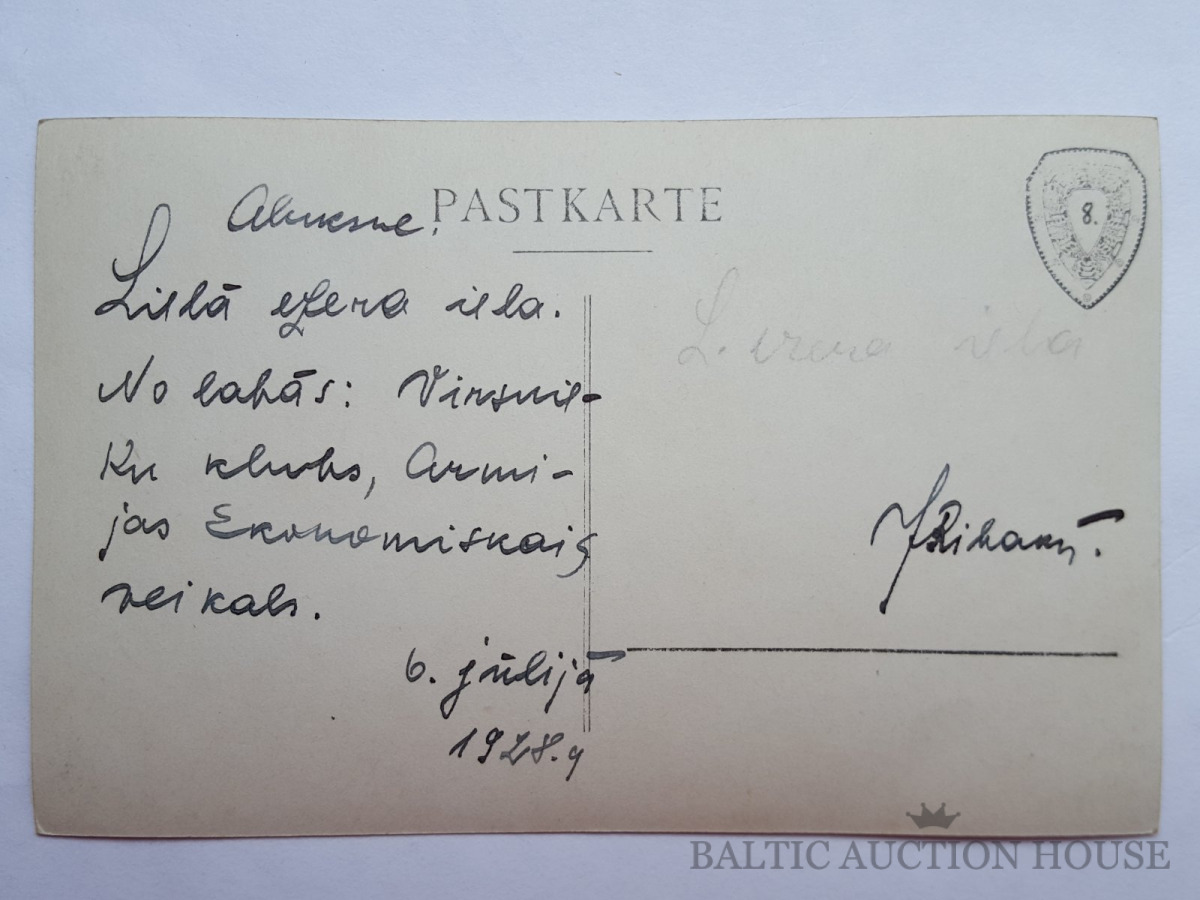 PASTKARTE
8.
Aluksne.
Lielā ezera iela.
No labās: Virsnie-
ku klubs, Armi-
jas Ekonomiskais
veikals.
6. jūlijā
1928. g
L. ezera iela
BALTIC AUCTION HOUSE